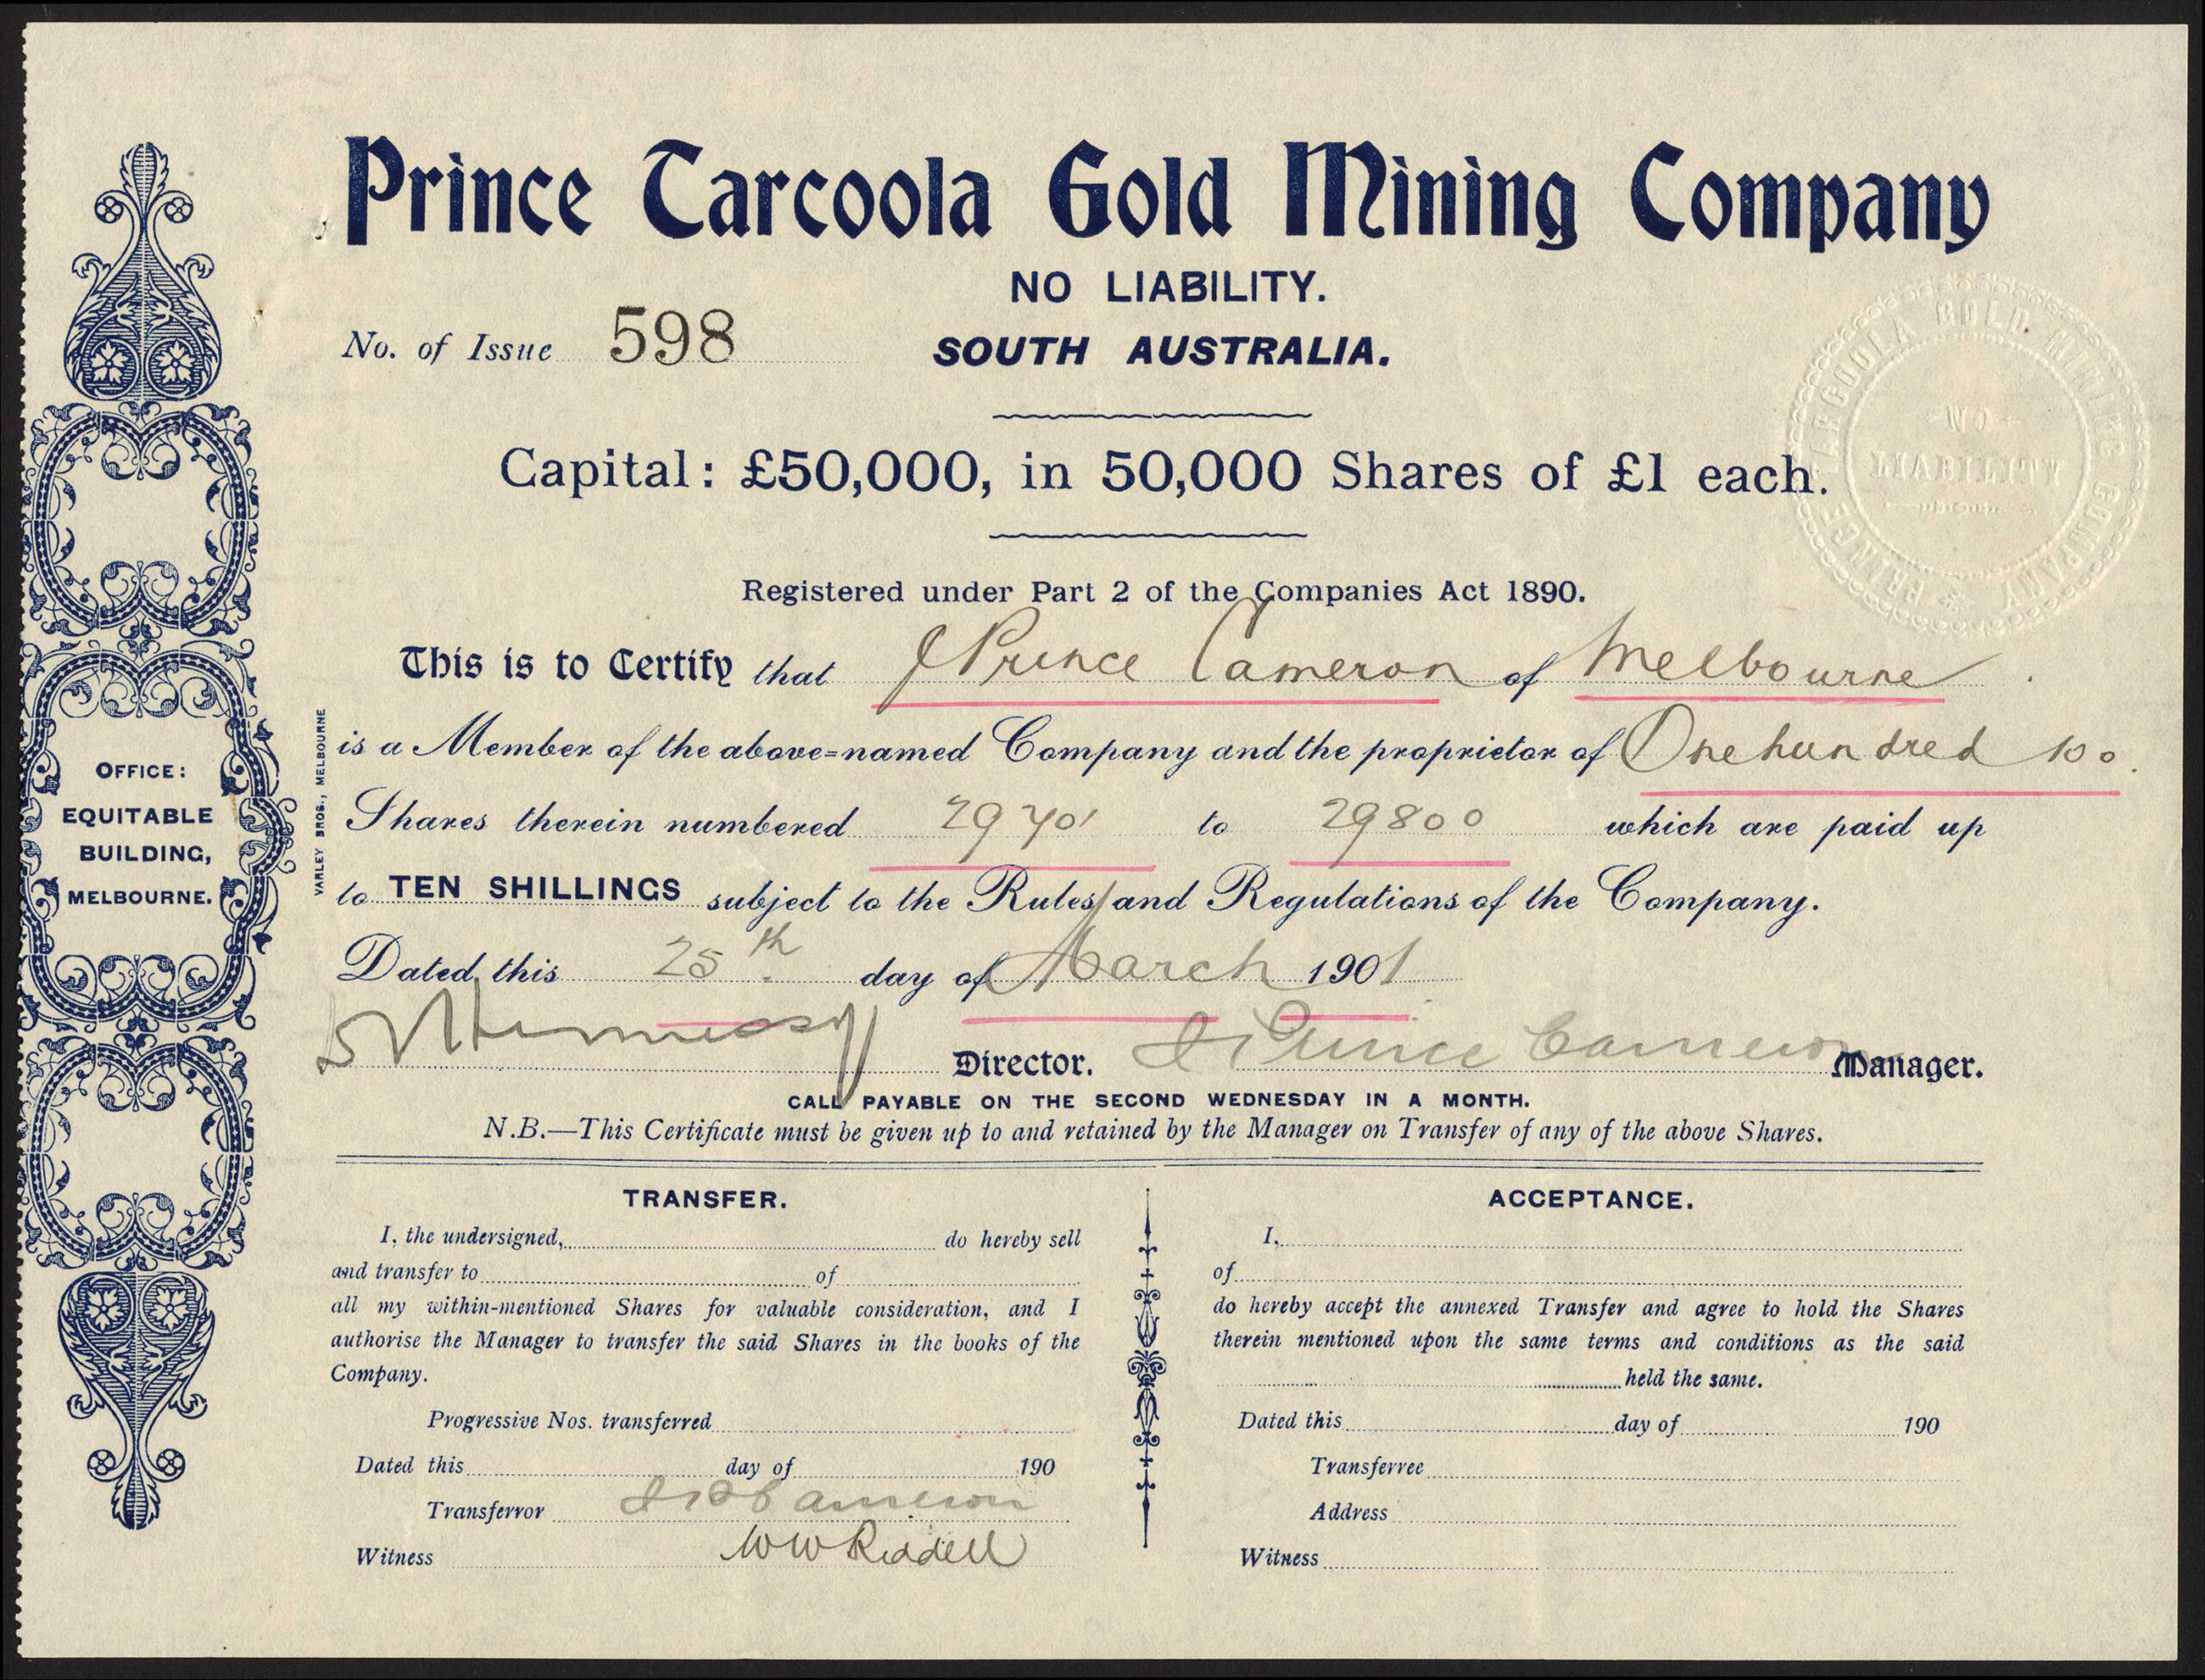 Prince Tarcoola Gold Mining Company
NO LIABILITY.
No. of Issue 598
SOUTH AUSTRALIA.
PRINCE TARCOOLA GOLD MINING COMPANY
NO
LIABILITY
Capital: £50,000, in 50,000 Shares of £1 each.
Registered under Part 2 of the Companies Act 1890.
This is to Certify that J Prince Cameron of Melbourne
is a Member of the above=named Company and the proprietor of One hundred 100
Shares therein numbered 29701 to 29800 which are paid up
to TEN SHILLINGS subject to the Rules and Regulations of the Company.
Dated this 25th day of March 1901
Director. J Prince Cameron Manager.
CALL PAYABLE ON THE SECOND WEDNESDAY IN A MONTH.
N.B.—This Certificate must be given up to and retained by the Manager on Transfer of any of the above Shares.
OFFICE:
EQUITABLE
BUILDING,
MELBOURNE.
VARLEY BROS., MELBOURNE
TRANSFER.
I, the undersigned, do hereby sell
and transfer to of
all my within-mentioned Shares for valuable consideration, and I
authorise the Manager to transfer the said Shares in the books of the
Company.
Progressive Nos. transferred
Dated this day of 190
Transferror J P Cameron
Witness W W Riddell
ACCEPTANCE.
I,
of
do hereby accept the annexed Transfer and agree to hold the Shares
therein mentioned upon the same terms and conditions as the said
held the same.
Dated this day of 190
Transferree
Address
Witness